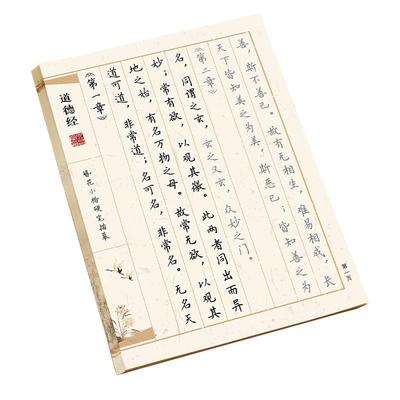 道德经
簪花小楷硬笔描摹
《第一章》
道可道，非常道；名可名，非常名。无名天
地之始，有名万物之母。故常无欲，以观其
妙；常有欲，以观其徼。此两者同出而异
名，同谓之玄，玄之又玄，众妙之门。
《第二章》
天下皆知美之为美，斯恶已；皆知善之为
善，斯不善已。故有无相生，难易相成，长
第一页